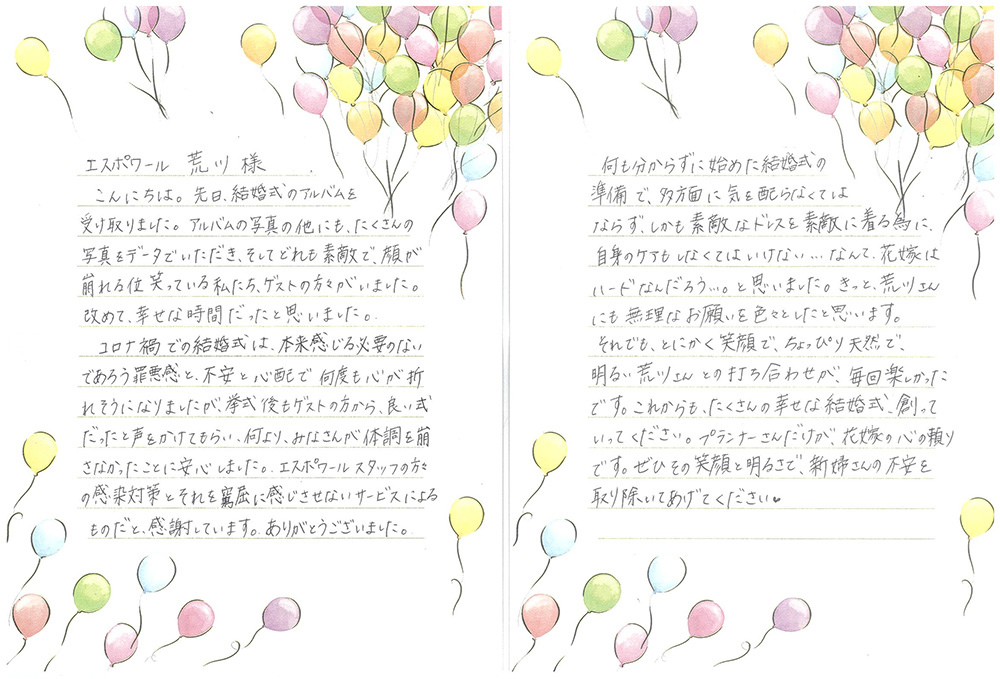 エスポワール 荒川 様
こんにちは。先日、結婚式のアルバムを
受け取りました。アルバムの写真の他にも、たくさんの
写真をデータでいただき、そしてどれも素敵で、顔が
崩れる位笑っている私たち、ゲストの方々がいました。
改めて、幸せな時間だったと思いました。
コロナ禍での結婚式は、本来感じる必要のない
であろう罪悪感と、不安と心配で何度も心が折
れそうになりましたが、挙式後もゲストの方から、良い式
だったと声をかけてもらい、何より、みなさんが体調を崩
さなかったことに安心しました。エスポワールスタッフの方々
の感染対策とそれを窮屈に感じさせないサービスによる
ものだと、感謝しています。ありがとうございました。
何も分からずに始めた結婚式の
準備で、多方面に気を配らなくては
ならず、しかも素敵なドレスを素敵に着る為に、
自身のケアもしなくてはいけない…なんて、花嫁は
ハードなんだろう…。と思いました。きっと、荒川さん
にも無理なお願いを色々としたと思います。
それでも、とにかく笑顔で、ちょっぴり天然で、
明るい荒川さんとの打ち合わせが、毎回楽しかった
です。これからも、たくさんの幸せな結婚式、創って
いってください。プランナーさんだけが、花嫁の心の頼り
です。ぜひその笑顔と明るさで、新婦さんの不安を
取り除いてあげてください♥